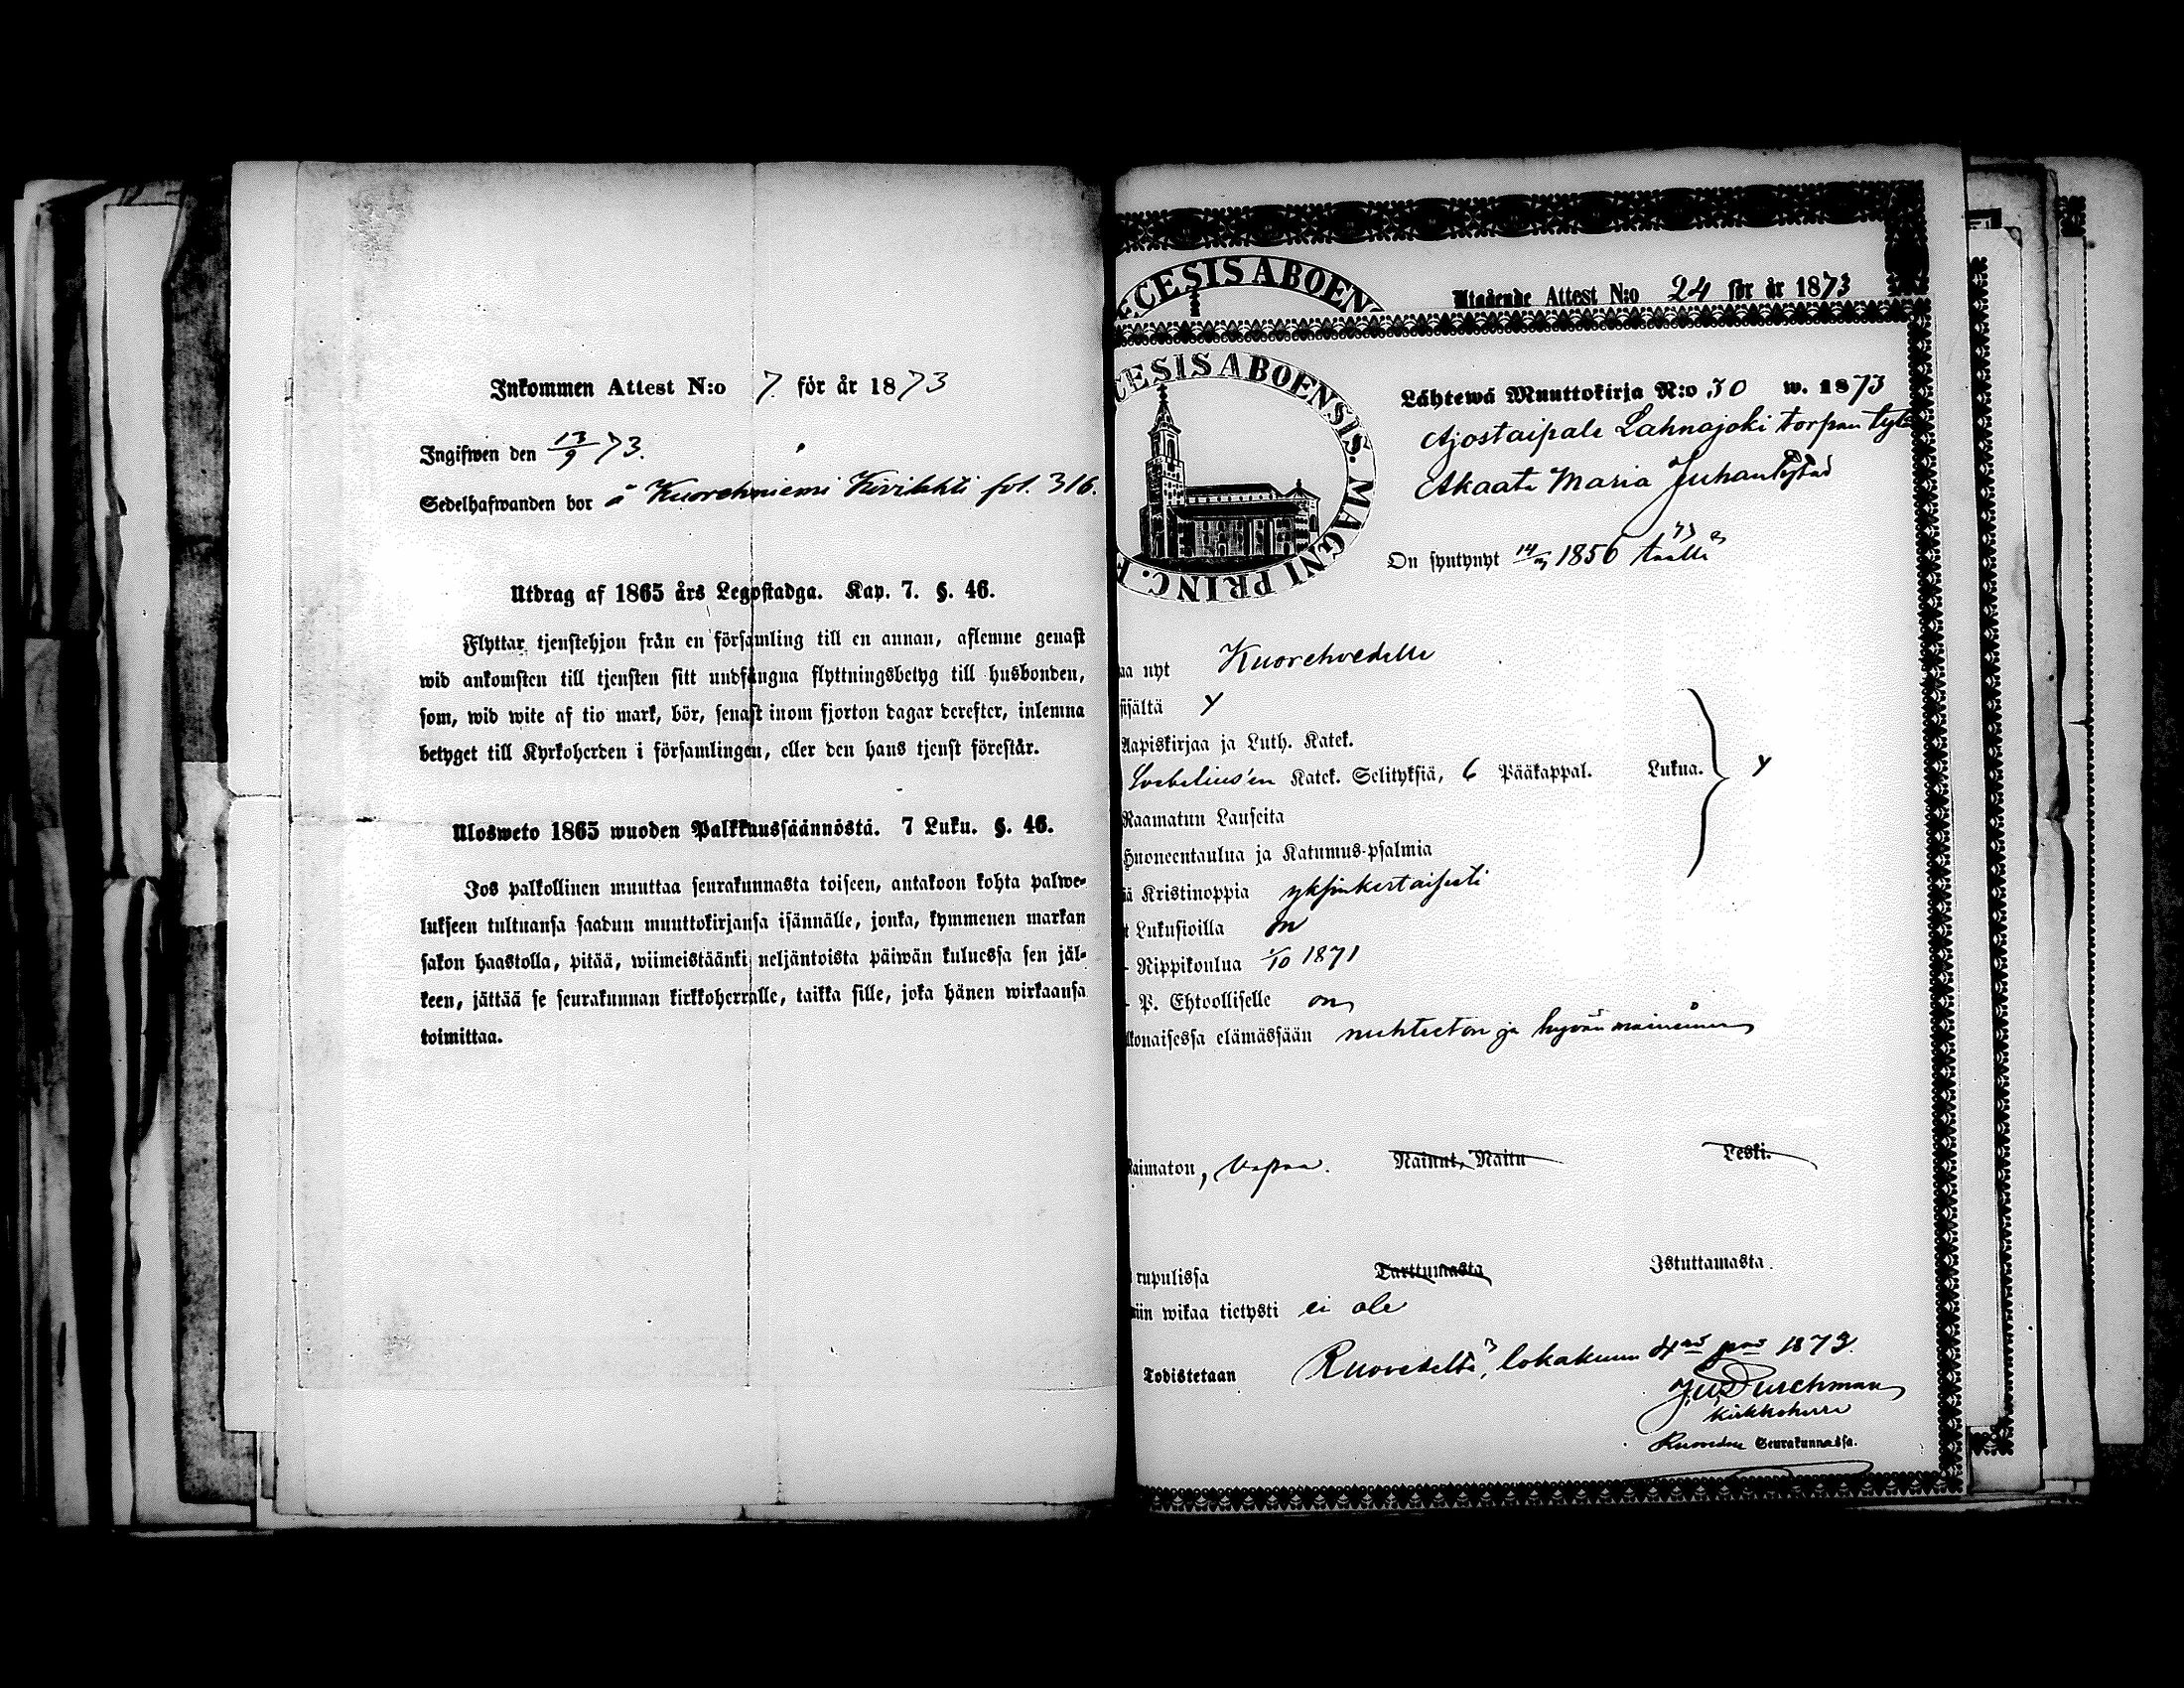 Inkommen Attest N:o 7. för år 1873
Ingifwen den 13/9 73.
Sedelhafwanden bor å Kuorehniemi Kivilahti fol. 316.
Utdrag af 1865 års Legostadga. Kap. 7. §. 46.
Flyttar tjenstehjon från en församling till en annan, aflemne genast
wid ankomsten till tjensten sitt undfångna flyttningsbetyg till husbonden,
som, wid wite af tio mark, bör, senast inom fjorton dagar derefter, inlemna
betyget till Kyrkoherden i församlingen, eller den hans tjenst förestår.
Ulosweto 1865 wuoden Palkkaussäännöstä. 7 Luku. §. 46.
Jos palkollinen muuttaa seurakunnasta toiseen, antakoon kohta palwe-
lukseen tultuansa saadun muuttokirjansa isännälle, jonka, kymmenen markan
sakon haastolla, pitää, wiimeistäänki neljäntoista päiwän kuluessa sen jäl-
keen, jättää se seurakunnan kirkkoherralle, taikka sille, joka hänen wirkaansa
toimittaa.
ECESIS ABOEN
Utgående Attest N:o 24 för år 1873
CESIS ABOENSIS. MAGNI PRINC. F
Lähtewä Muuttokirja N:o 30 w. 1873
Ajostaipale Lahnajoki torpan
Akaata Maria Juhantytär
On syntynyt 1856 täällä
aa nyt Kuorehvedelle
sisältä y
Aapiskirjaa ja Luth. Katek.
Svebelius'en Katek. Selityksiä, 6 Pääkappal. Lukua. y
Raamatun Lauseita
Huoneentaulua ja Katumus-psalmia
iä Kristinoppia yksinkertaisesti
t Lukusioilla on
- Rippikoulua 1/10 1871
- P. Ehtoolliselle on
lkonaisessa elämässään nuhteeton ja hyvän maineinen
Naimaton, vapaa. Nainut, Naitu Leski.
rupulissa Tarttumasta Istuttamasta.
niin wikaa tietysti ei ole
Todistetaan Ruovedeltä, lokakuun 4nä pnä 1873.
Durchman
Kirkkoherra
Ruoveden Seurakunnassa.